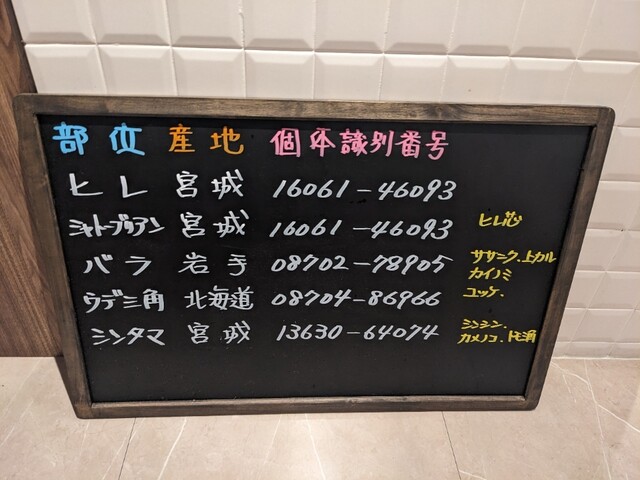 部位 産地 個体識別番号
ヒレ 宮城 16061-46093
シャトーブリアン 宮城 16061-46093 ヒレ芯
バラ 岩手 08702-78905 ササニク.上カル
カイノミ
ウデ三角 北海道 08704-86966 ユッケ.
シンタマ 宮城 13630-64074 シンシン.
カメノコ.トモ三角